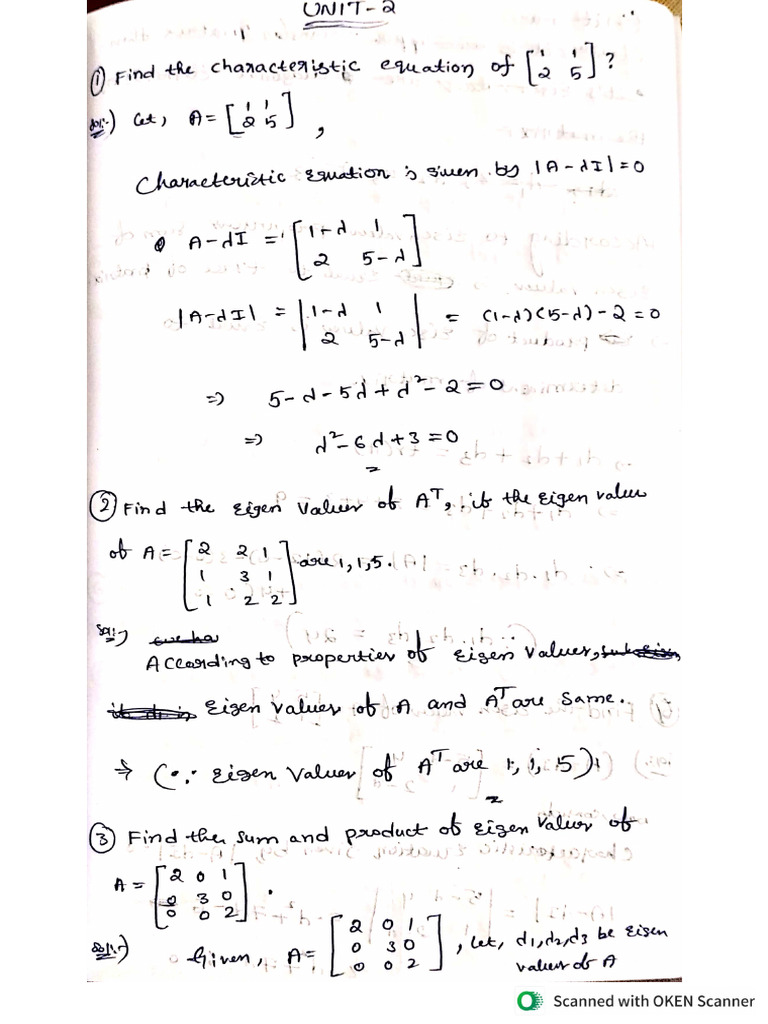 UNIT-2
① Find the characteristic equation of [1 1; 2 5] ?
Sol:-) Let, A = [1 1; 2 5] ,
Characteristic Equation is given by |A-λI|=0
A-λI = [1-λ 1; 2 5-λ]
|A-λI| = |1-λ 1; 2 5-λ| = (1-λ)(5-λ)-2=0
=> 5-λ-5λ+λ²-2=0
=> λ²-6λ+3=0
② Find the Eigen Values of Aᵀ, if the Eigen value
of A = [2 2 1; 1 3 1; 1 2 2] are 1,1,5.
Sol:-)
According to properties of Eigen Values,
Eigen Values of A and Aᵀ are same.
⇒ (∵ Eigen Values of Aᵀ are 1, 1, 5)
③ Find the sum and product of Eigen Values of
A = [2 0 1; 0 3 0; 0 0 2] .
Sol:-) Given, A = [2 0 1; 0 3 0; 0 0 2] , Let, λ1,λ2,λ3 be Eigen
values of A
Scanned with OKEN Scanner